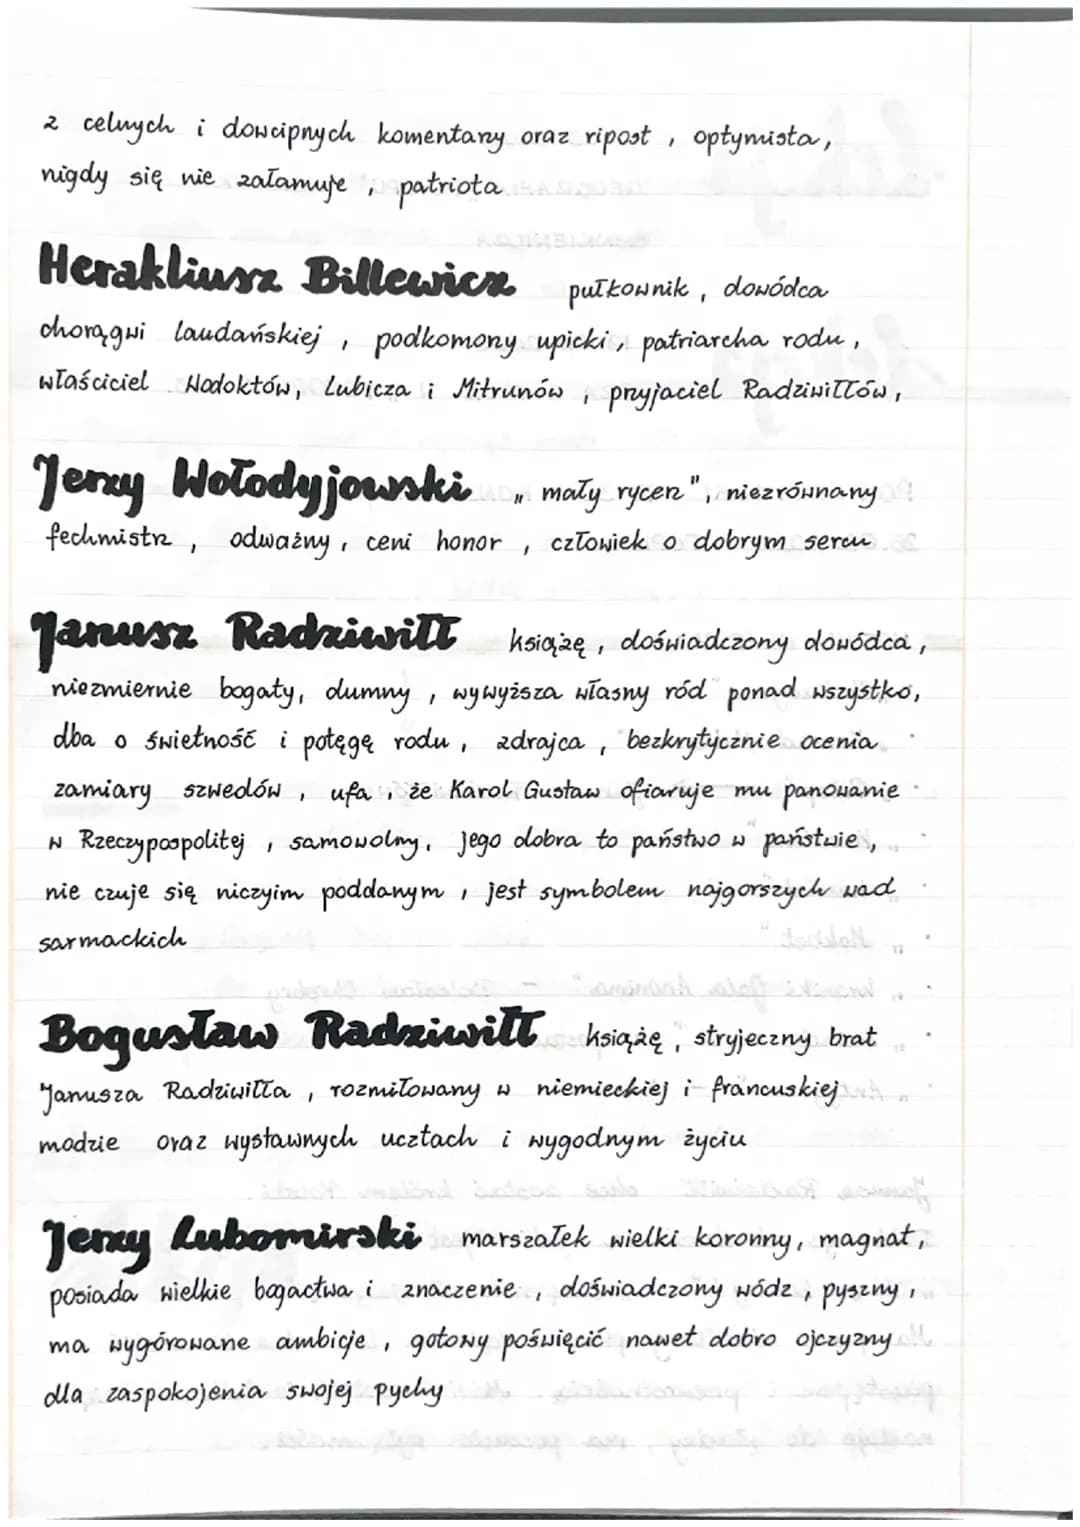 z celnych i dowcipnych komentarzy oraz ripost, optymista,
nigdy się nie załamuje, patriota
Herakliusz Billewicz pułkownik, dowódca
chorągwi laudańskiej, podkomorzy upicki, patriarcha rodu,
właściciel Wodoktów, Lubicza i Mitrunów, przyjaciel Radziwiłłów,
Jerzy Wołodyjowski „mały rycerz", niezrównany
fechmistrz, odważny, ceni honor, człowiek o dobrym sercu
Janusz Radziwiłł książę, doświadczony dowódca,
niezmiernie bogaty, dumny, wywyższa własny ród ponad wszystko,
dba o świetność i potęgę rodu, zdrajca, bezkrytycznie ocenia
zamiary szwedów, ufa, że Karol Gustaw ofiaruje mu panowanie
w Rzeczypospolitej, samowolny, jego dobra to państwo w państwie,
nie czuje się niczyim poddanym, jest symbolem najgorszych wad
sarmackich
Bogusław Radziwiłł książę, stryjeczny brat
Janusza Radziwiłła, rozmiłowany w niemieckiej i francuskiej
modzie oraz wystawnych ucztach i wygodnym życiu
Jerzy Lubomirski marszałek wielki koronny, magnat,
posiada wielkie bogactwa i znaczenie, doświadczony wódz, pyszny,
ma wygórowane ambicje, gotowy poświęcić nawet dobro ojczyzny
dla zaspokojenia swojej pychy